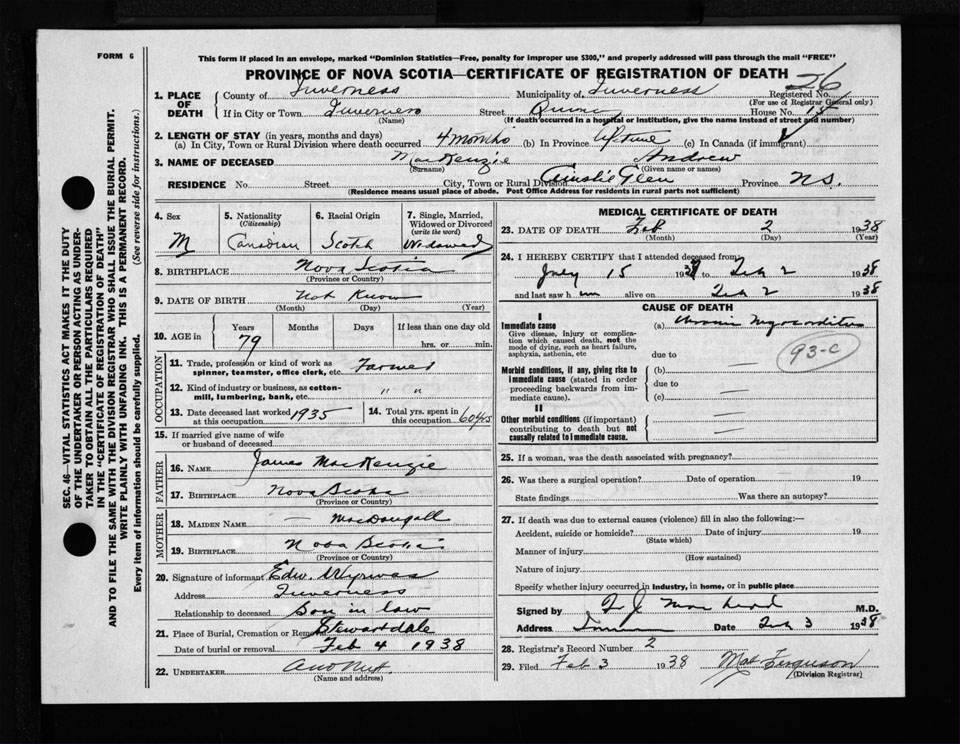 FORM 6
This form if placed in an envelope, marked "Dominion Statistics—Free, penalty for improper use $300," and properly addressed will pass through the mail "FREE"
PROVINCE OF NOVA SCOTIA—CERTIFICATE OF REGISTRATION OF DEATH
26
1. PLACE OF DEATH
County of Inverness Municipality of Inverness Registered No.
(For use of Registrar General only)
If in City or Town Inverness Street House No. 15
(Name) (If death occurred in a hospital or institution, give the name instead of street and number)
2. LENGTH OF STAY (in years, months and days)
(a) In City, Town or Rural Division where death occurred 4 months (b) In Province Lifetime (c) In Canada (if immigrant)
3. NAME OF DECEASED MacKenzie Andrew
(Surname) (Given name or names)
RESIDENCE No. Street City, Town or Rural Division Ainslie Glen Province N.S.
(Residence means usual place of abode. Post Office Address for residents in rural parts not sufficient)
4. Sex M
5. Nationality (Citizenship) Canadian
6. Racial Origin Scotch
7. Single, Married, Widowed or Divorced (write the word) Widowed
8. BIRTHPLACE Nova Scotia
(Province or Country)
9. DATE OF BIRTH Not Know
(Month) (Day) (Year)
10. AGE in Years 79 Months Days If less than one day old
hrs. or min.
OCCUPATION
11. Trade, profession or kind of work as spinner, teamster, office clerk, etc. Farmer
12. Kind of industry or business, as cotton-mill, lumbering, bank, etc. " "
13. Date deceased last worked at this occupation 1935
14. Total yrs. spent in this occupation 60 yrs
15. If married give name of wife or husband of deceased
FATHER
16. NAME James MacKenzie
17. BIRTHPLACE Nova Scotia
(Province or Country)
MOTHER
18. MAIDEN NAME — MacDougall
19. BIRTHPLACE Nova Scotia
(Province or Country)
20. Signature of informant Edw.
Address Inverness
Relationship to deceased Son in law
21. Place of Burial, Cremation or Removal Stewartdale
Date of burial or removal Feb 4 1938
22. UNDERTAKER
(Name and address)
MEDICAL CERTIFICATE OF DEATH
23. DATE OF DEATH Feb 2 1938
(Month) (Day) (Year)
24. I HEREBY CERTIFY that I attended deceased from
July 15 1937 to Feb 2 1938
and last saw him alive on Feb 2 1938
CAUSE OF DEATH
I
Immediate cause
Give disease, injury or complication which caused death, not the mode of dying, such as heart failure, asphyxia, asthenia, etc
(a) Chronic Myocarditis
93-c
due to
Morbid conditions, if any, giving rise to immediate cause (stated in order proceeding backwards from immediate cause).
(b) —
due to
(c) —
II
Other morbid conditions (if important) contributing to death but not causally related to immediate cause.
25. If a woman, was the death associated with pregnancy?
26. Was there a surgical operation? Date of operation 19
State findings Was there an autopsy?
27. If death was due to external causes (violence) fill in also the following:—
Accident, suicide or homicide? Date of injury 19
(State which)
Manner of injury
(How sustained)
Nature of injury
Specify whether injury occurred in industry, in home, or in public place
Signed by M.D.
Address Date Feb 3 1938
28. Registrar's Record Number 2
29. Filed Feb 3 1938 Ferguson
(Division Registrar)
SEC. 46—VITAL STATISTICS ACT MAKES IT THE DUTY
OF THE UNDERTAKER OR PERSON ACTING AS UNDER-
TAKER TO OBTAIN ALL THE PARTICULARS REQUIRED
IN THE "CERTIFICATE OF REGISTRATION OF DEATH"
AND TO FILE THE SAME WITH THE DIVISION REGISTRAR WHO SHALL ISSUE THE BURIAL PERMIT.
WRITE PLAINLY WITH UNFADING INK. THIS IS A PERMANENT RECORD.
Every item of information should be carefully supplied. (See reverse side for instructions.)